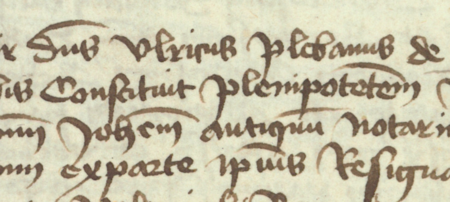 dns Ulricus Plebanus de
Constituit plenipotetem
Johem antiquu notari
exparte ipius Resigna